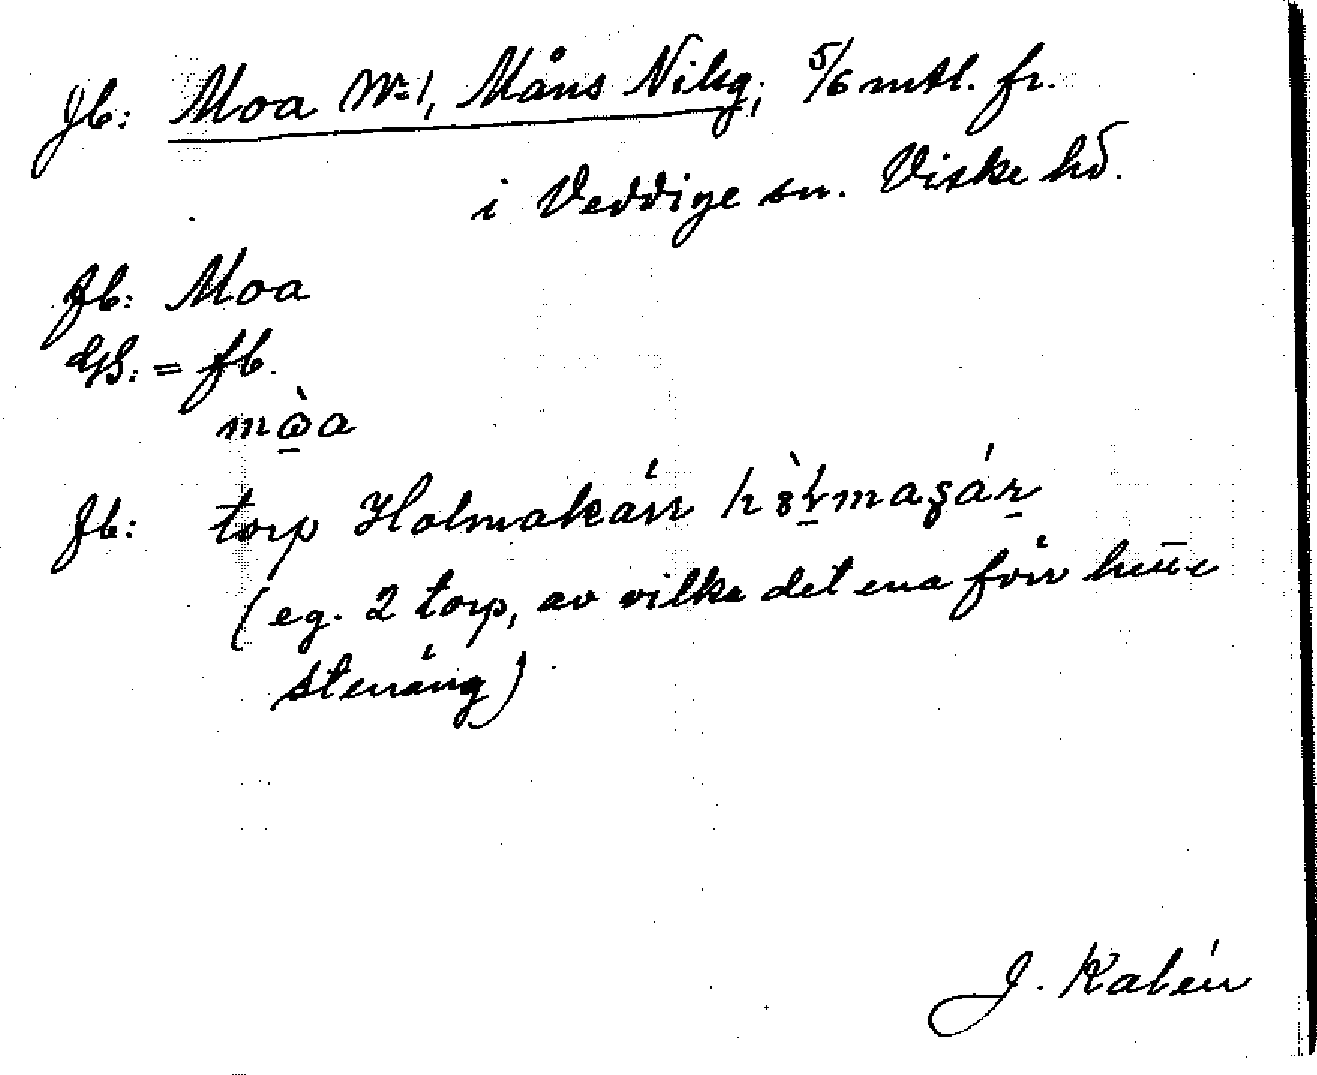 Jb: Moa No 1, Måns Nilsg; 5/6 mtl. fr.
i Veddige sn. Viske hd.
fb: Moa
GS: = fb.
mòa
fb: torp Holmakärr
(eg. 2 torp, av vilka det ena förr hette
stenäng)
J. Kalén